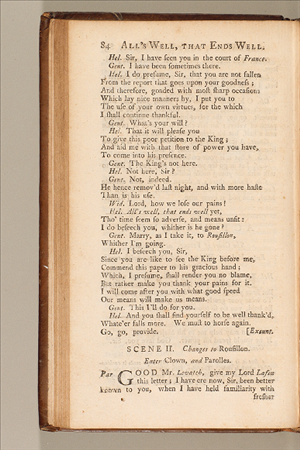 84 ALL's WELL, THAT ENDS WELL.
Hel. Sir, I have seen you in the court of France.
Gent. I have been sometimes there.
Hel. I do presume, Sir, that you are not fallen
From the report that goes upon your goodness;
And therefore, goaded with most sharp occasions
Which lay nice manners by, I put you to
The use of your own virtues, for the which
I shall continue thankful.
Gent. What's your will?
Hel. That it will please you
To give this poor petition to the King;
And aid me with that store of power you have,
To come into his presence.
Gent. The King's not here.
Hel. Not here, Sir?
Gent. Not, indeed.
He hence remov'd last night, and with more haste
Than is his use.
Wid. Lord, how we lose our pains!
Hel. All's well, that ends well yet,
Tho' time seem so adverse, and means unfit:
I do beseech you, whither is he gone?
Gent. Marry, as I take it, to Rousillon,
Whither I'm going.
Hel. I beseech you, Sir,
Since you are like to see the King before me,
Commend this paper to his gracious hand;
Which, I presume, shall render you no blame,
But rather make you thank your pains for it.
I will come after you with what good speed
Our means will make us means.
Gent. This I'll do for you.
Hel. And you shall find yourself to be well thank'd,
Whate'er falls more. We must to horse again.
Go, go, provide. [Exeunt.
SCENE II. Changes to Rousillon.
Enter Clown, and Parolles.
Par. GOOD Mr. Levatch, give my Lord Lafeu
this letter; I have ere now, Sir, been better
known to you, when I have held familiarity with
fresher